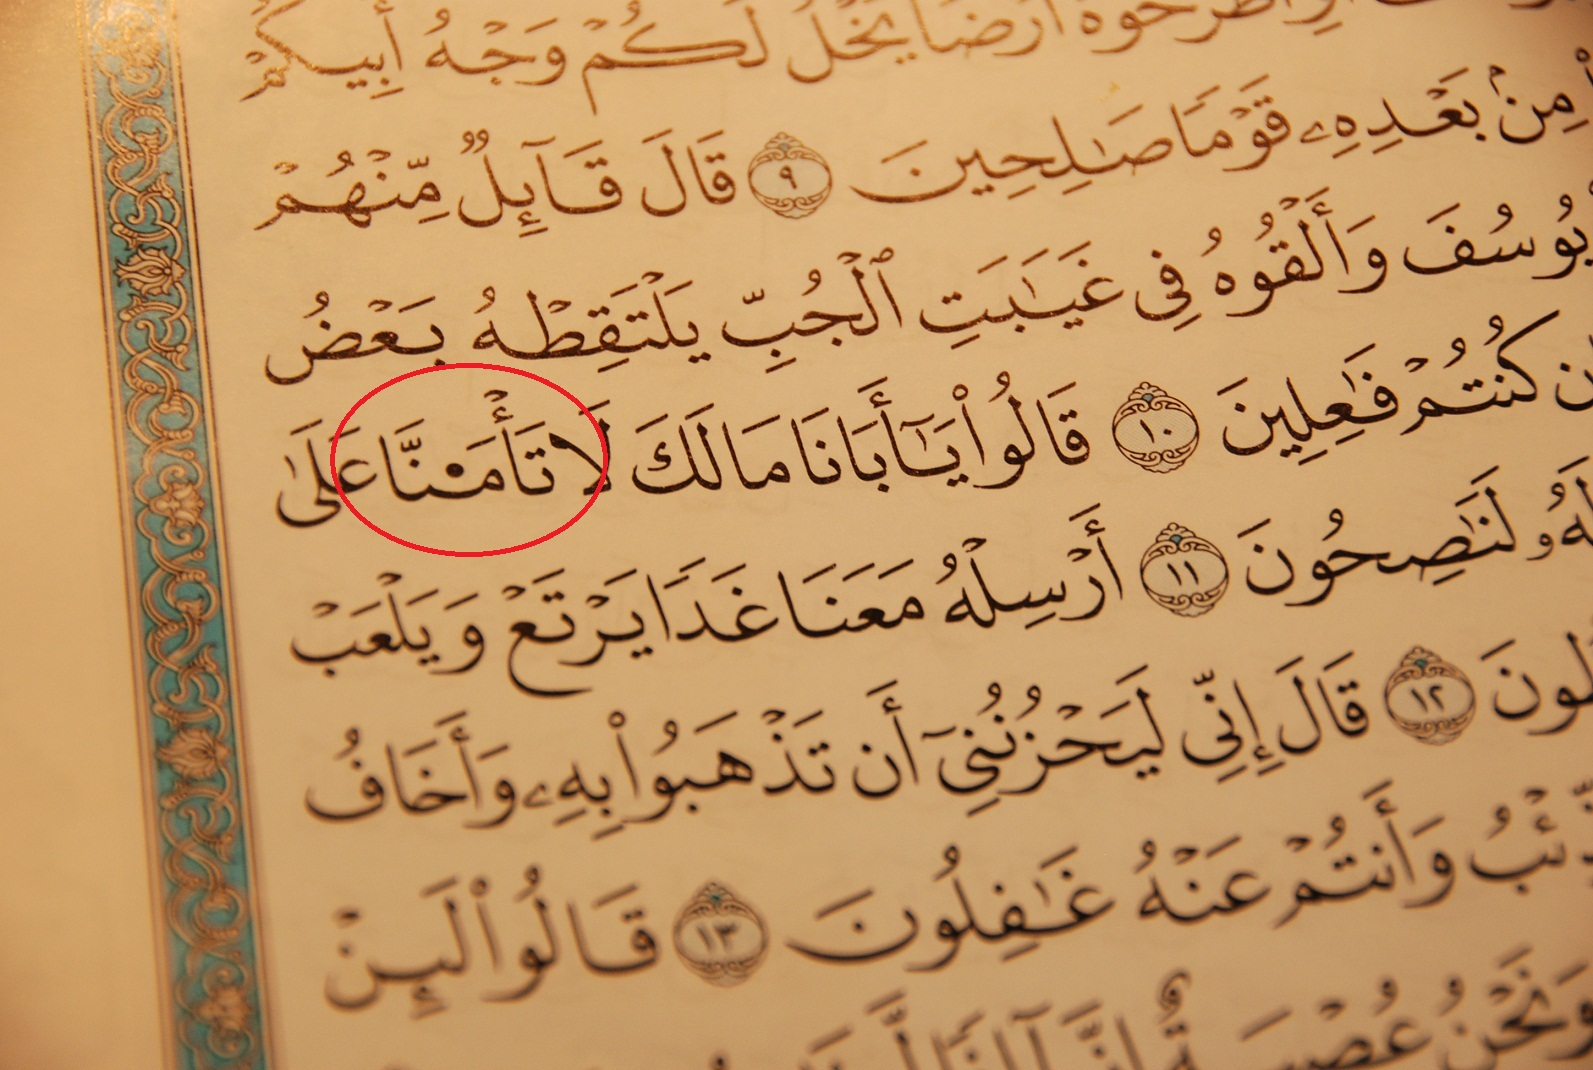 أَوِ ٱطۡرَحُوهُ أَرۡضٗا يَخۡلُ لَكُمۡ وَجۡهُ أَبِيكُمۡ
مِنۢ بَعۡدِهِۦ قَوۡمٗا صَٰلِحِينَ ٩ قَالَ قَآئِلٞ مِّنۡهُمۡ
يُوسُفَ وَأَلۡقُوهُ فِي غَيَٰبَتِ ٱلۡجُبِّ يَلۡتَقِطۡهُ بَعۡضُ
كُنتُمۡ فَٰعِلِينَ ١٠ قَالُواْ يَٰٓأَبَانَا مَا لَكَ لَا تَأۡمَ۬نَّا عَلَىٰ
لَهُۥ لَنَٰصِحُونَ ١١ أَرۡسِلۡهُ مَعَنَا غَدٗا يَرۡتَعۡ وَيَلۡعَبۡ
١٢ قَالَ إِنِّي لَيَحۡزُنُنِيٓ أَن تَذۡهَبُواْ بِهِۦ وَأَخَافُ
وَأَنتُمۡ عَنۡهُ غَٰفِلُونَ ١٣ قَالُواْ لَئِنۡ
وَنَحۡنُ عُصۡبَةٌ إِنَّآ إِذٗا